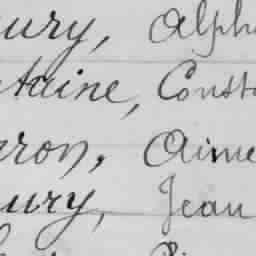 ury, Alph
ntaine, Const
rron, Aime
ury, Jean